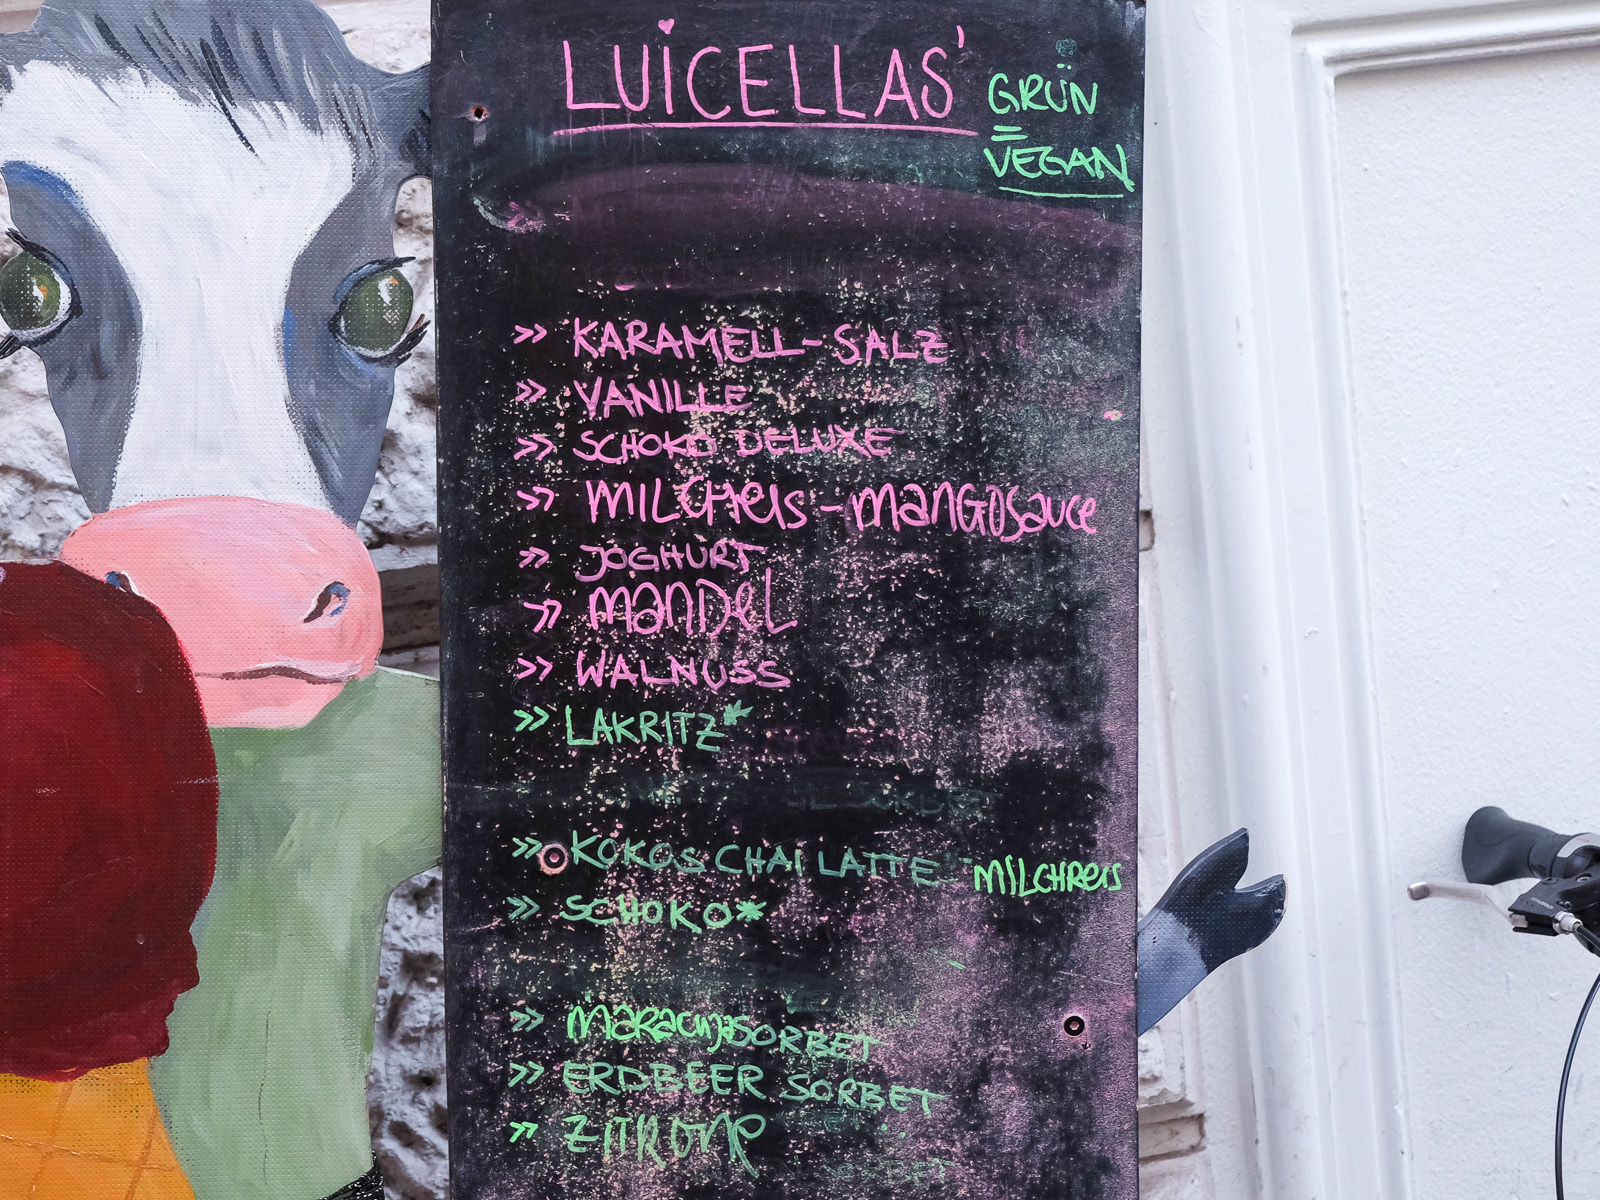 LUICELLAS'
GRÜN
=
VEGAN
>> KARAMELL-SALZ
>> VANILLE
>> SCHOKO DELUXE
>> MILCHREIS - MANGOSAUCE
>> JOGHURT
>> MANDEL
>> WALNUSS
>> LAKRITZ*
>> KOKOS CHAI LATTE - MILCHREIS
>> SCHOKO*
>> MARACUJASORBET
>> ERDBEER SORBET
>> ZITRONE